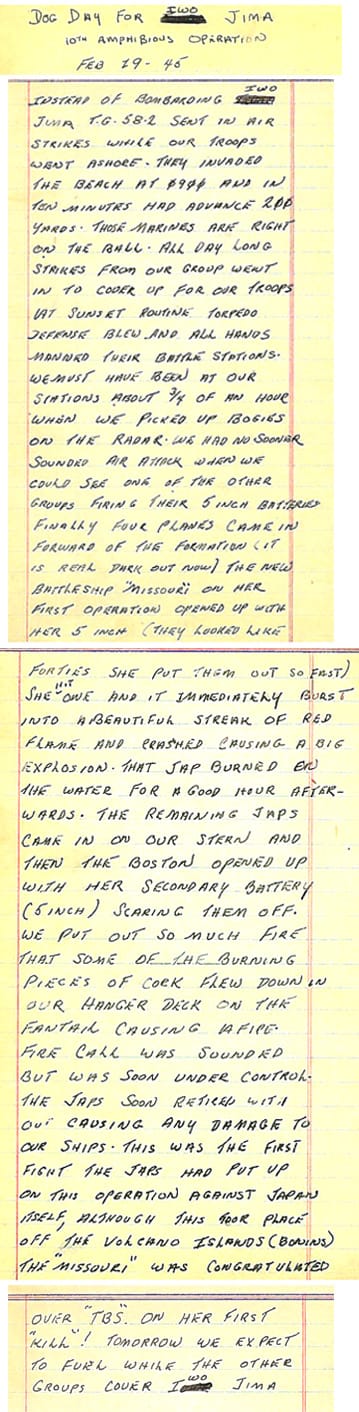 DOG DAY FOR IWO JIMA
10TH AMPHIBIOUS OPERATION
FEB 19-45
INSTEAD OF BOMBARDING IWO
JIMA T.G. 58.2 SENT IN AIR
STRIKES WHILE OUR TROOPS
WENT ASHORE. THEY INVADED
THE BEACH AT 0900 AND IN
TEN MINUTES HAD ADVANCE 200
YARDS. THOSE MARINES ARE RIGHT
ON THE BALL. ALL DAY LONG
STRIKES FROM OUR GROUP WENT
IN TO COVER UP FOR OUR TROOPS
AT SUNSET ROUTINE TORPEDO
DEFENSE BLEW AND ALL HANDS
MANNED THEIR BATTLE STATIONS.
WE MUST HAVE BEEN AT OUR
STATIONS ABOUT 3/4 OF AN HOUR
WHEN WE PICKED UP BOGIES
ON THE RADAR. WE HAD NO SOONER
SOUNDED AIR ATTACK WHEN WE
COULD SEE ONE OF THE OTHER
GROUPS FIRING THEIR 5 INCH BATTERIES
FINALLY FOUR PLANES CAME IN
FORWARD OF THE FORMATION (IT
IS REAL DARK OUT NOW) THE NEW
BATTLESHIP "MISSOURI" ON HER
FIRST OPERATION OPENED UP WITH
HER 5 INCH (THEY LOOKED LIKE
FORTIES SHE PUT THEM OUT SO FAST)
SHE HIT ONE AND IT IMMEDIATELY BURST
INTO A BEAUTIFUL STREAK OF RED
FLAME AND CRASHED CAUSING A BIG
EXPLOSION. THAT JAP BURNED ON
THE WATER FOR A GOOD HOUR AFTER-
WARDS. THE REMAINING JAPS
CAME IN ON OUR STERN AND
THEN THE BOSTON OPENED UP
WITH HER SECONDARY BATTERY
(5 INCH) SCARING THEM OFF.
WE PUT OUT SO MUCH FIRE
THAT SOME OF THE BURNING
PIECES OF CORK FLEW DOWN IN
OUR HANGER DECK ON THE
FANTAIL CAUSING A FIRE.
FIRE CALL WAS SOUNDED
BUT WAS SOON UNDER CONTROL.
THE JAPS SOON RETIRED WITH
OUT CAUSING ANY DAMAGE TO
OUR SHIPS. THIS WAS THE FIRST
FIGHT THE JAPS HAD PUT UP
ON THIS OPERATION AGAINST JAPAN
ITSELF, ALTHOUGH THIS TOOK PLACE
OFF THE VOLCANO ISLANDS (BONINS)
THE "MISSOURI" WAS CONGRATULATED
OVER "TBS". ON HER FIRST
"KILL"! TOMORROW WE EXPECT
TO FUEL WHILE THE OTHER
GROUPS COVER IWO JIMA